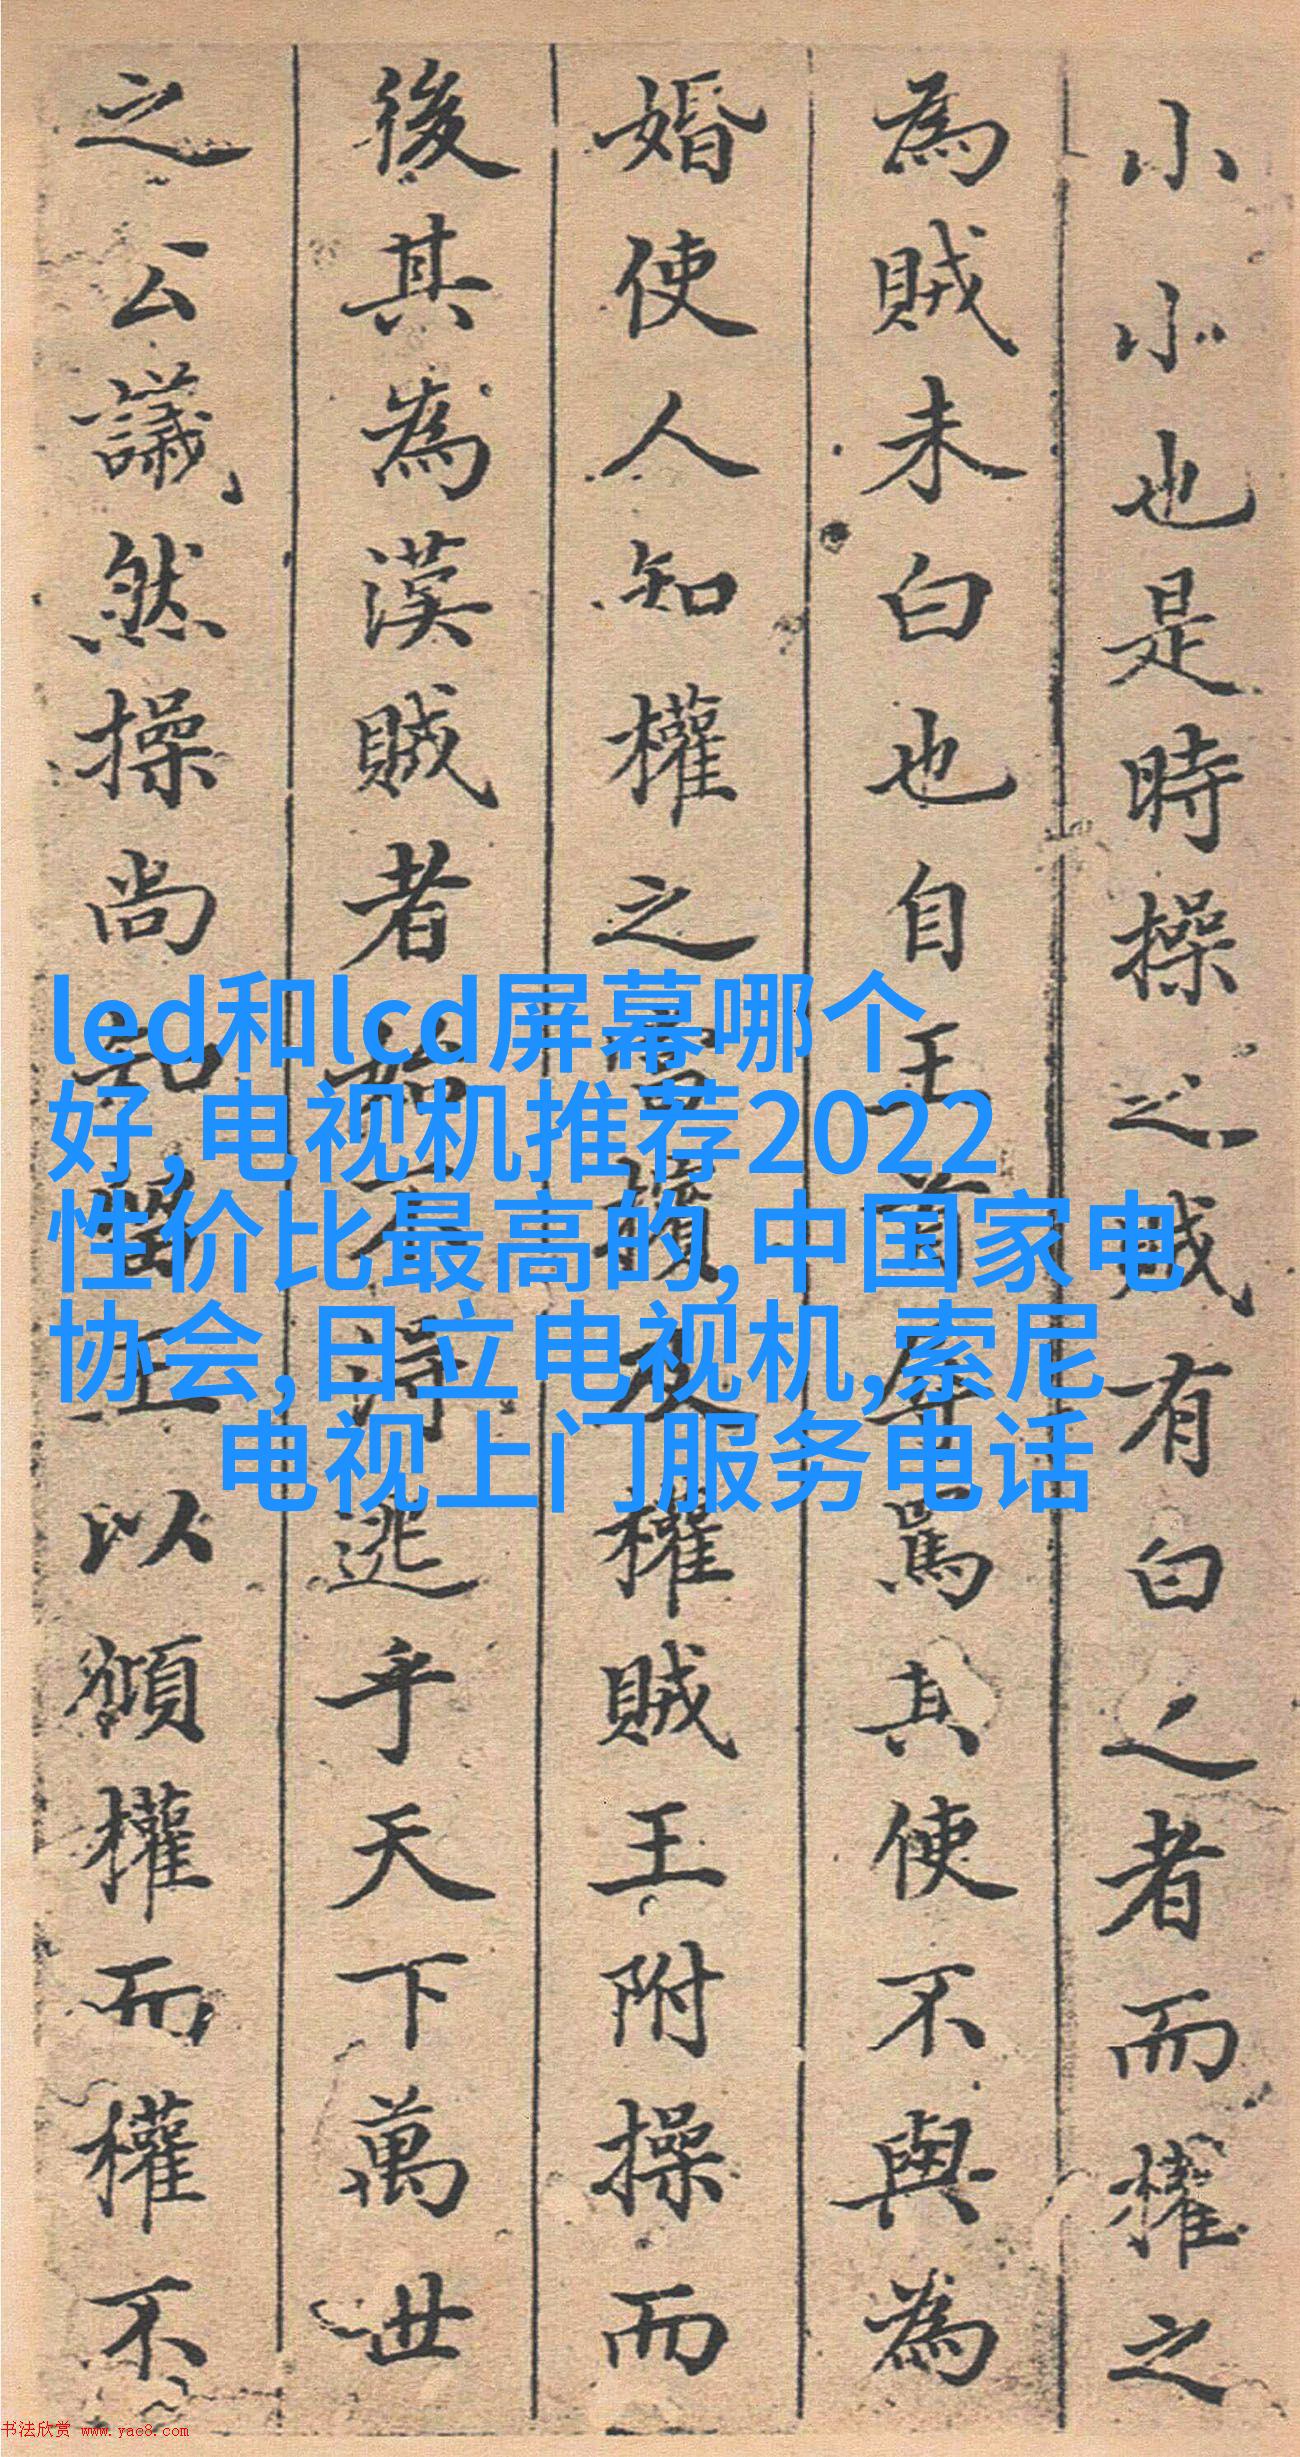 小小也是時操之賊有白之者而權之
為賊未白也自王首辱罵其使不與為
婚使人知權之當擯及權賊王附操而
後其為漢賊者始不得逃乎天下萬世
之公議然操尚知王以權而權不
led和lcd屏幕哪个
好,电视机推荐2022
性价比最高的,中国家电
协会,日立电视机,索尼
电视上门服务电话
书法欣赏 www.yac8.com